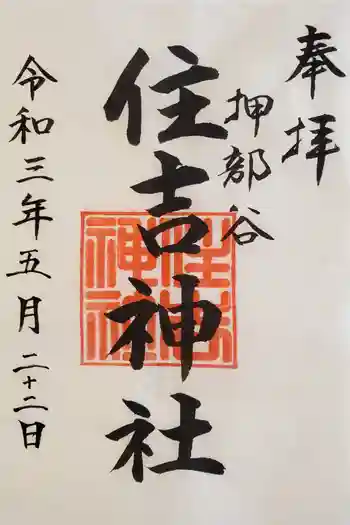 奉拝
押部谷
住吉神社
令和三年五月二十二日
住吉神社